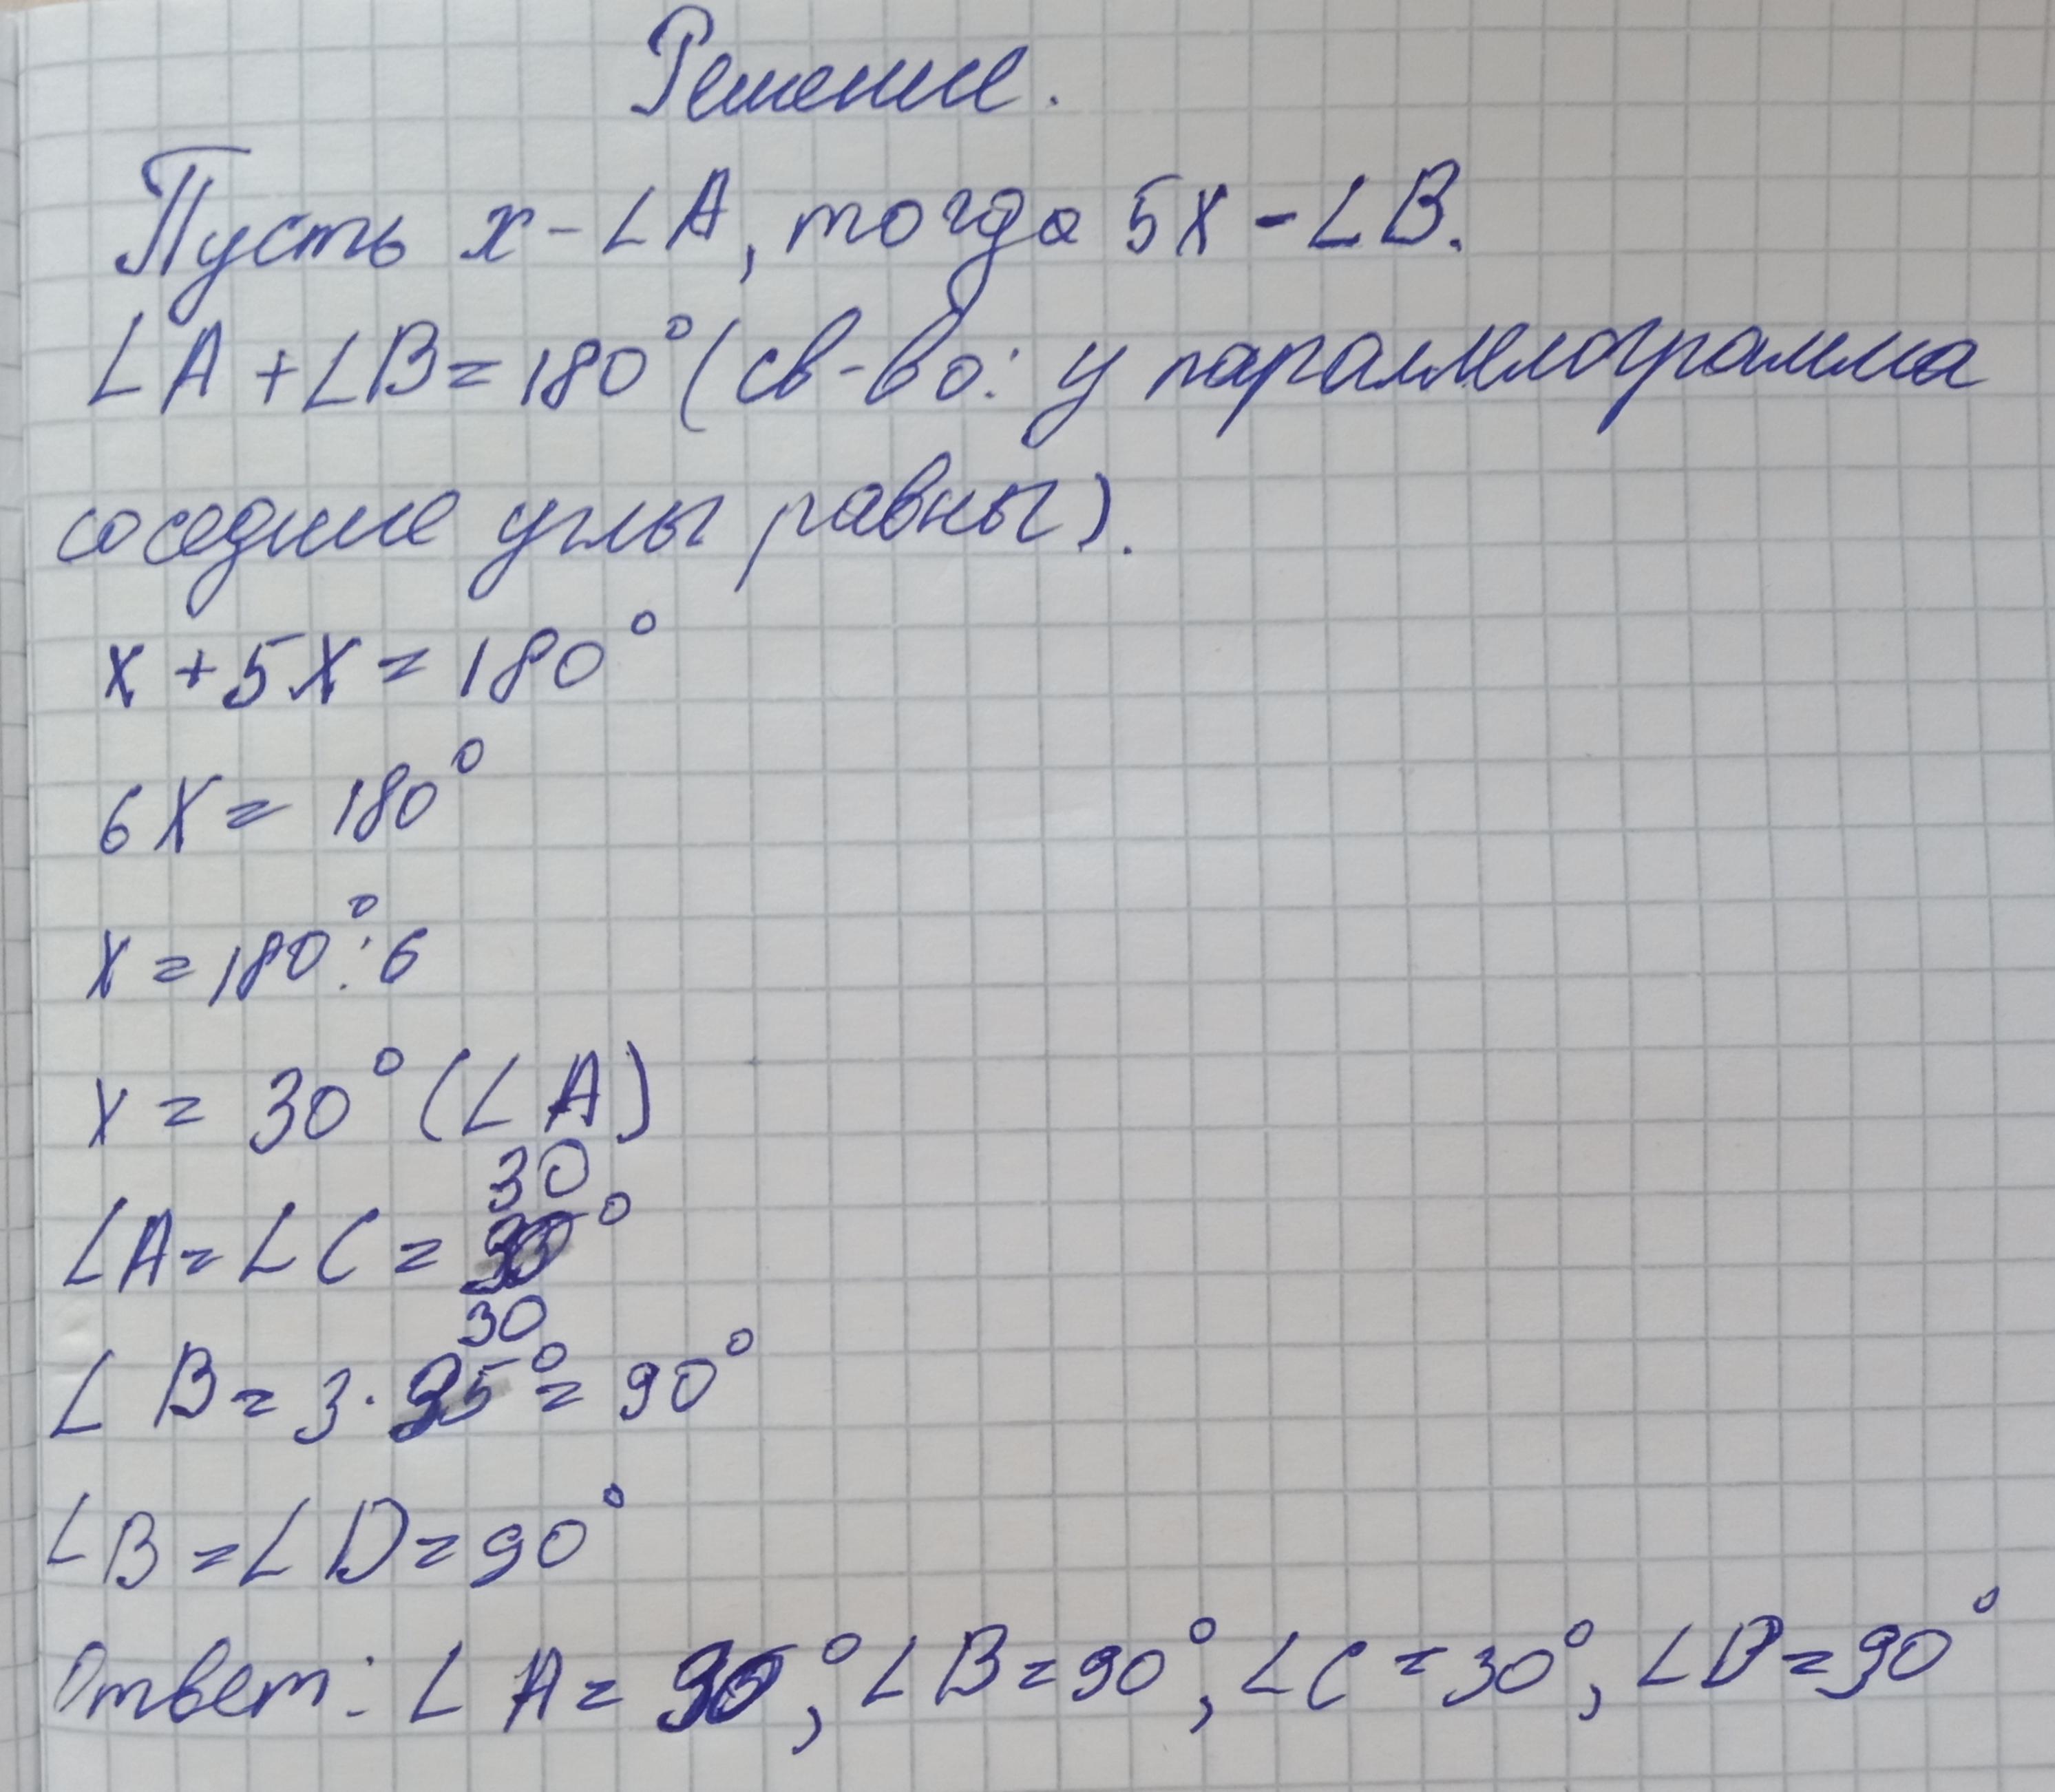 Решение.
Пусть x - ∠A, тогда 5x - ∠B.
∠A + ∠B = 180° (св-во: у параллелограмма
соседние углы равны).
x + 5x = 180°
6x = 180°
x = 180° : 6
x = 30° (∠A)
30
∠A = ∠C = 30°
30
∠B = 3 · 35° = 90°
∠B = ∠D = 90°
Ответ: ∠A = 30°, ∠B = 90°, ∠C = 30°, ∠D = 90°